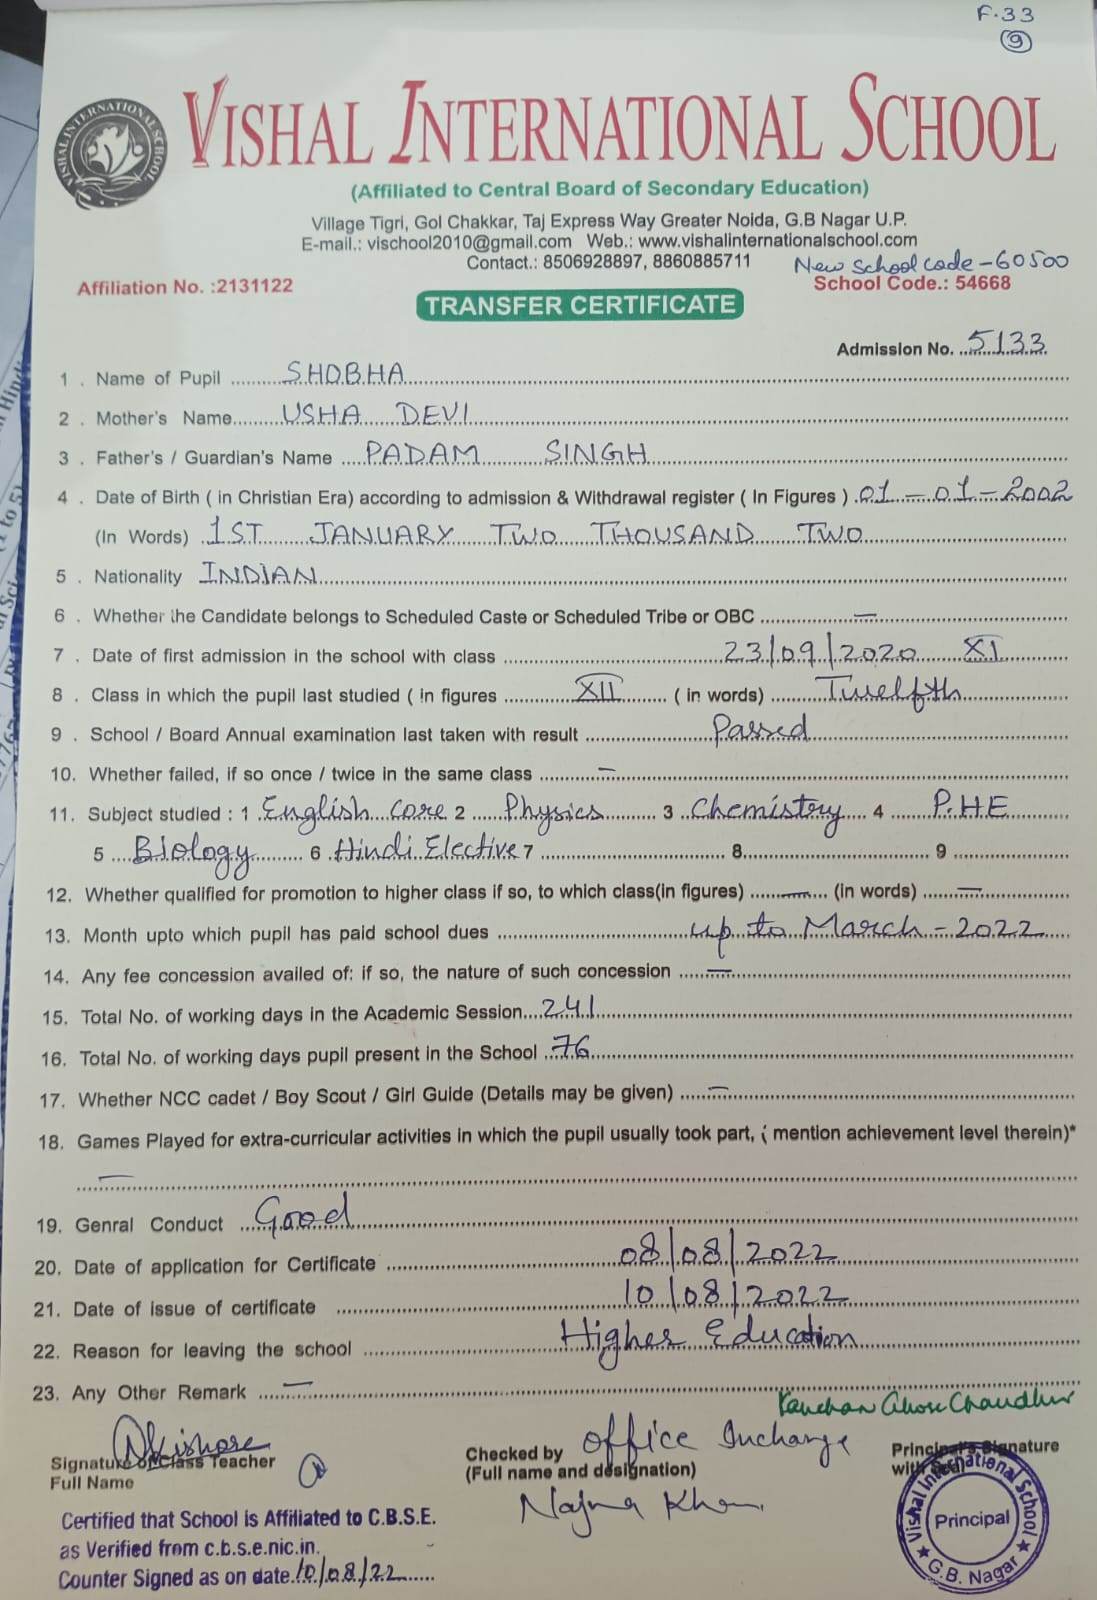 F.33
9
VISHAL INTERNATIONAL SCHOOL
VISHAL INTERNATIONAL SCHOOL
(Affiliated to Central Board of Secondary Education)
Village Tigri, Gol Chakkar, Taj Express Way Greater Noida, G.B Nagar U.P.
E-mail.: vischool2010@gmail.com Web.: www.vishalinternationalschool.com
Contact.: 8506928897, 8860885711 New School code - 60500
Affiliation No. :2131122 School Code.: 54668
TRANSFER CERTIFICATE
Admission No. 5133
1 . Name of Pupil SHOBHA
2 . Mother's Name USHA DEVI
3 . Father's / Guardian's Name PADAM SINGH
4 . Date of Birth ( in Christian Era) according to admission & Withdrawal register ( In Figures ) 01-01-2002
(In Words) 1ST JANUARY TWO THOUSAND TWO
5 . Nationality INDIAN
6 . Whether the Candidate belongs to Scheduled Caste or Scheduled Tribe or OBC —
7 . Date of first admission in the school with class 23/09/2020 XI
8 . Class in which the pupil last studied ( in figures XII ( in words) Twelfth
9 . School / Board Annual examination last taken with result Passed
10. Whether failed, if so once / twice in the same class —
11. Subject studied : 1 English Core 2 Physics 3 Chemistry 4 P.HE
5 Biology 6 Hindi Elective 7 8 9
12. Whether qualified for promotion to higher class if so, to which class(in figures) — (in words) —
13. Month upto which pupil has paid school dues up to March - 2022
14. Any fee concession availed of: if so, the nature of such concession —
15. Total No. of working days in the Academic Session 241
16. Total No. of working days pupil present in the School 76
17. Whether NCC cadet / Boy Scout / Girl Guide (Details may be given) —
18. Games Played for extra-curricular activities in which the pupil usually took part, ( mention achievement level therein)*
—
19. Genral Conduct Good
20. Date of application for Certificate 08/08/2022
21. Date of issue of certificate 10/08/2022
22. Reason for leaving the school Higher Education
23. Any Other Remark —
Kanchan Chaudhary
Signature of Class Teacher Checked by Office Incharge Principal's Signature
Full Name (Full name and designation) with Seal
Najma Khan
Vishal International School
Principal
G.B. Nagar
Certified that School is Affiliated to C.B.S.E.
as Verified from c.b.s.e.nic.in.
Counter Signed as on date 10/08/22